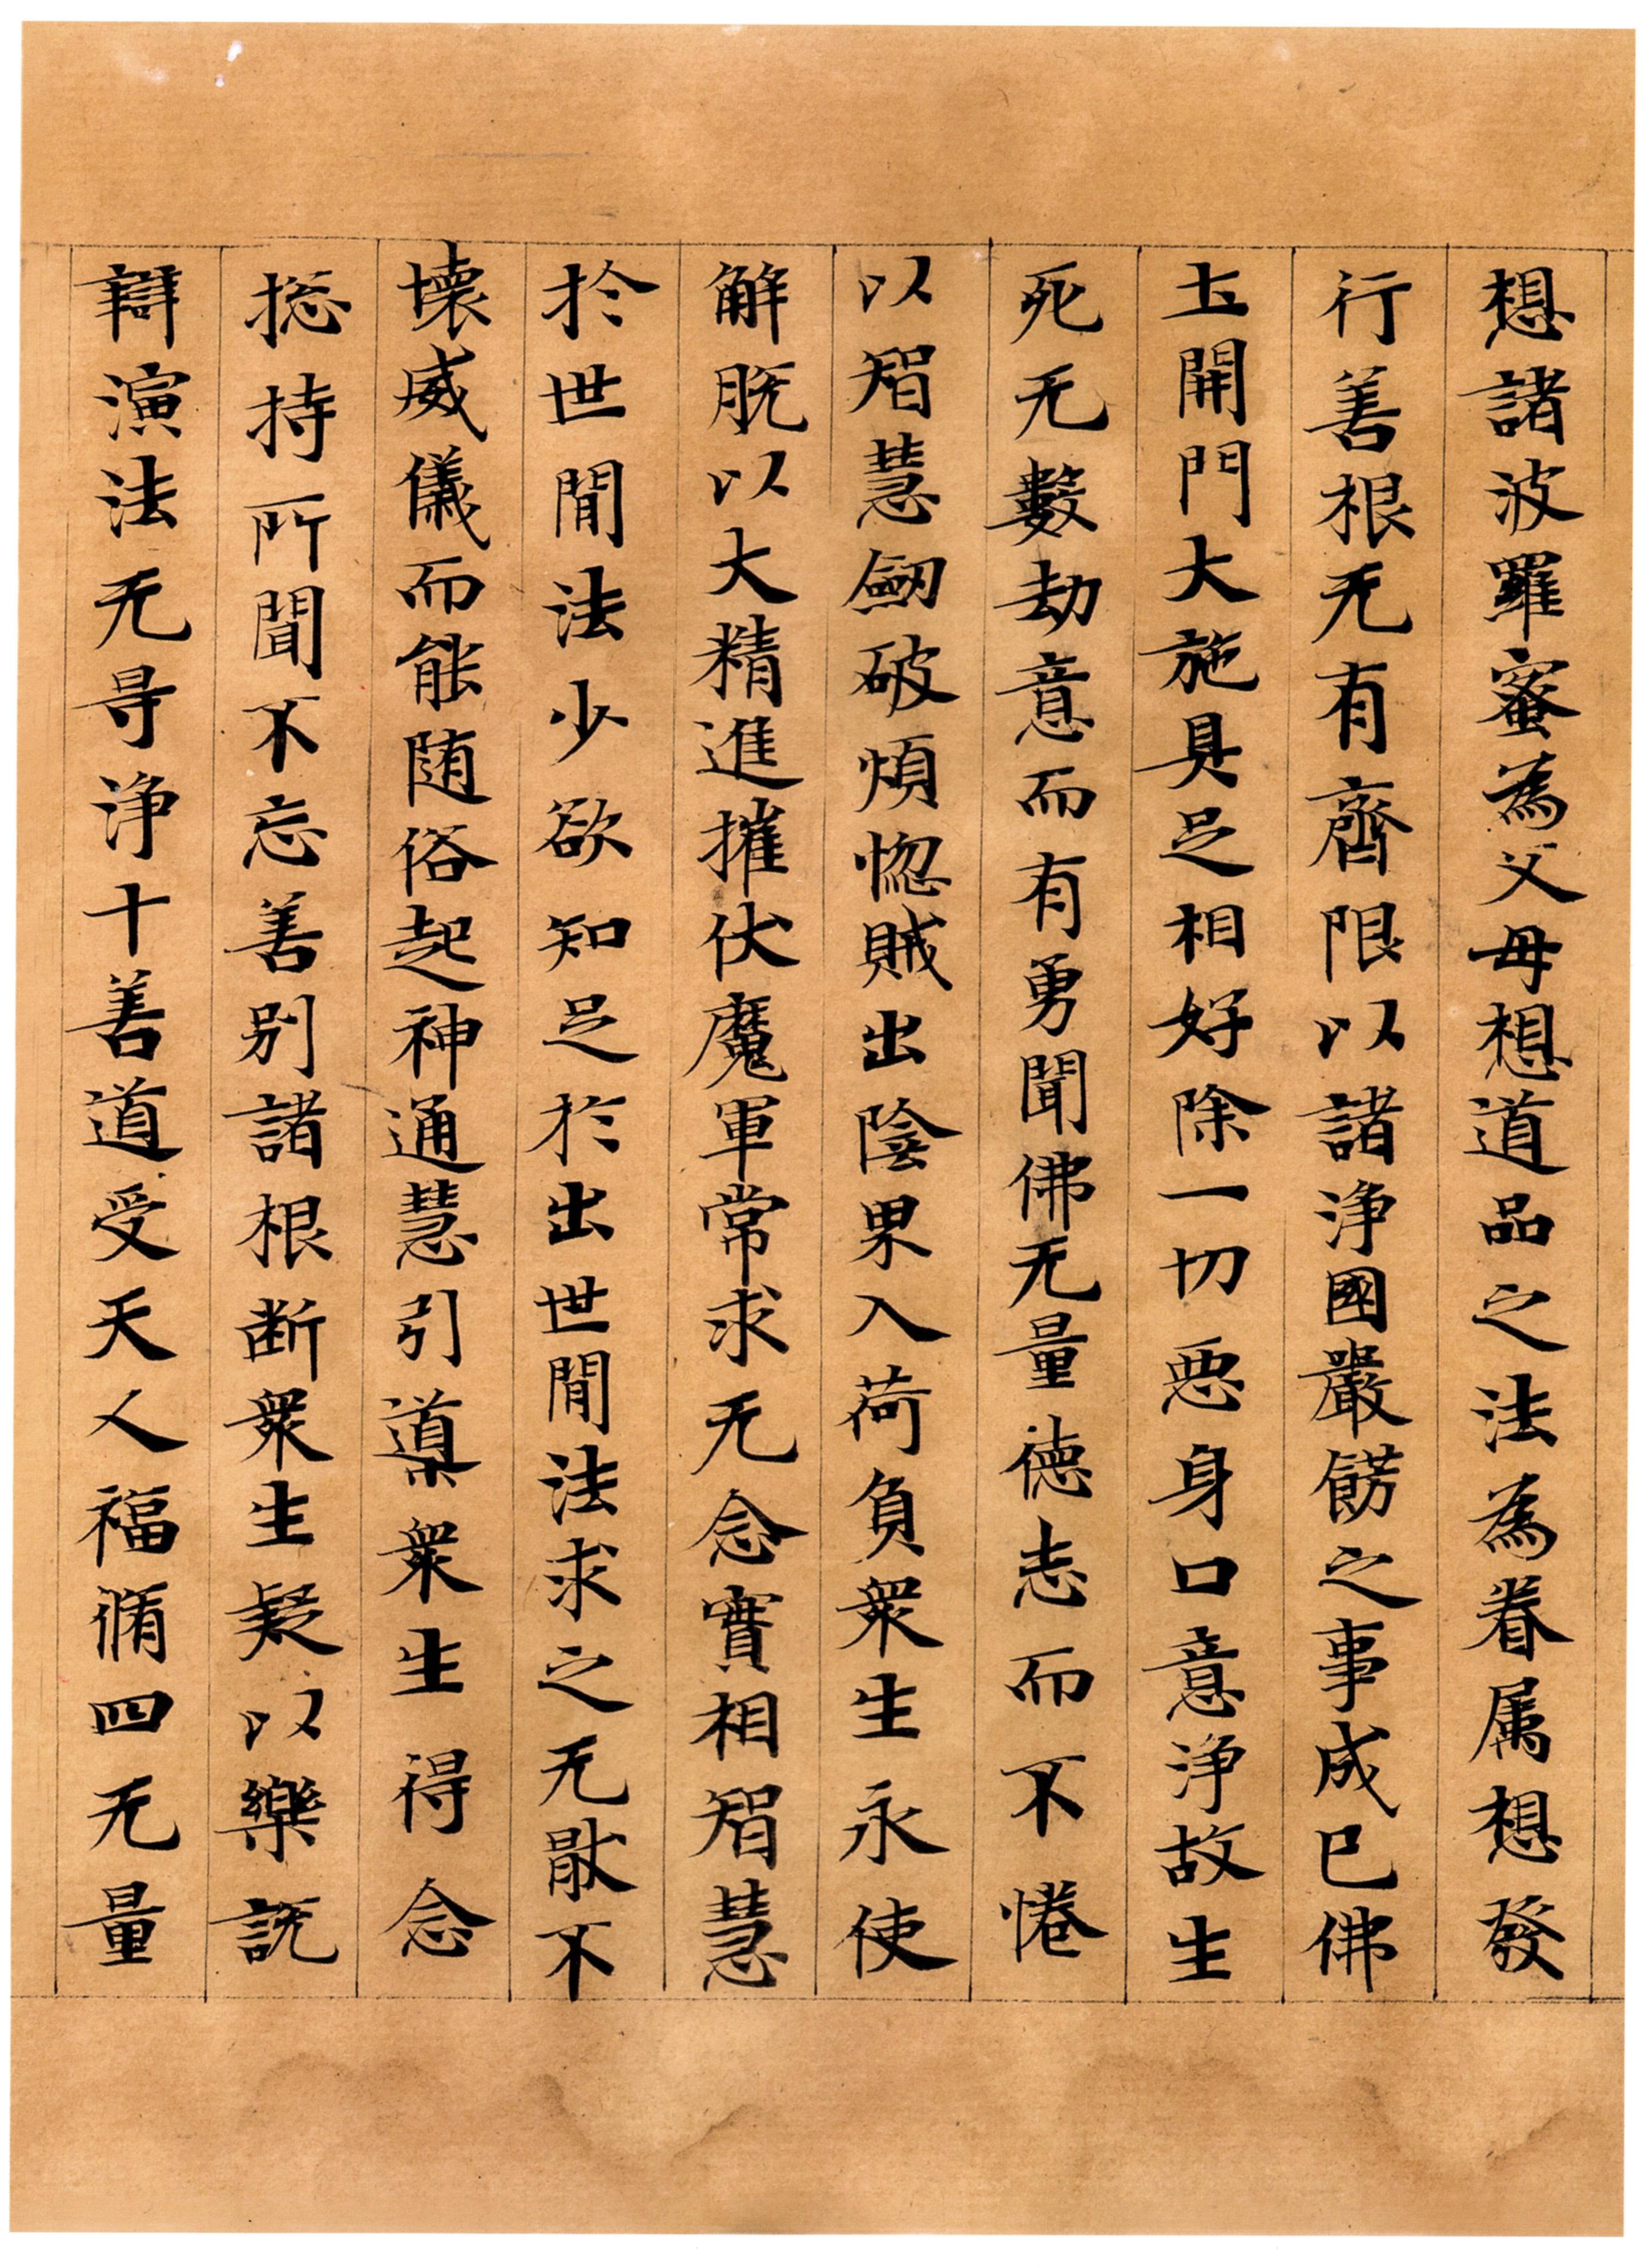 想諸波羅蜜為父母想道品之法為眷属想發
行善根无有齊限以諸淨國嚴餝之事成已佛
土開門大施具足相好除一切惡身口意淨故生
死无數劫意而有勇聞佛无量德志而不惓
以智慧劒破煩惚賊出陰界入荷負衆生永使
解脫以大精進摧伏魔軍常求无念實相智慧
於世間法少欲知足於出世間法求之无猒不
壞威儀而能随俗起神通慧引導衆生得念
捴持所聞不忘善別諸根断衆生疑以樂說
辯演法无㝵淨十善道受天人福脩四无量